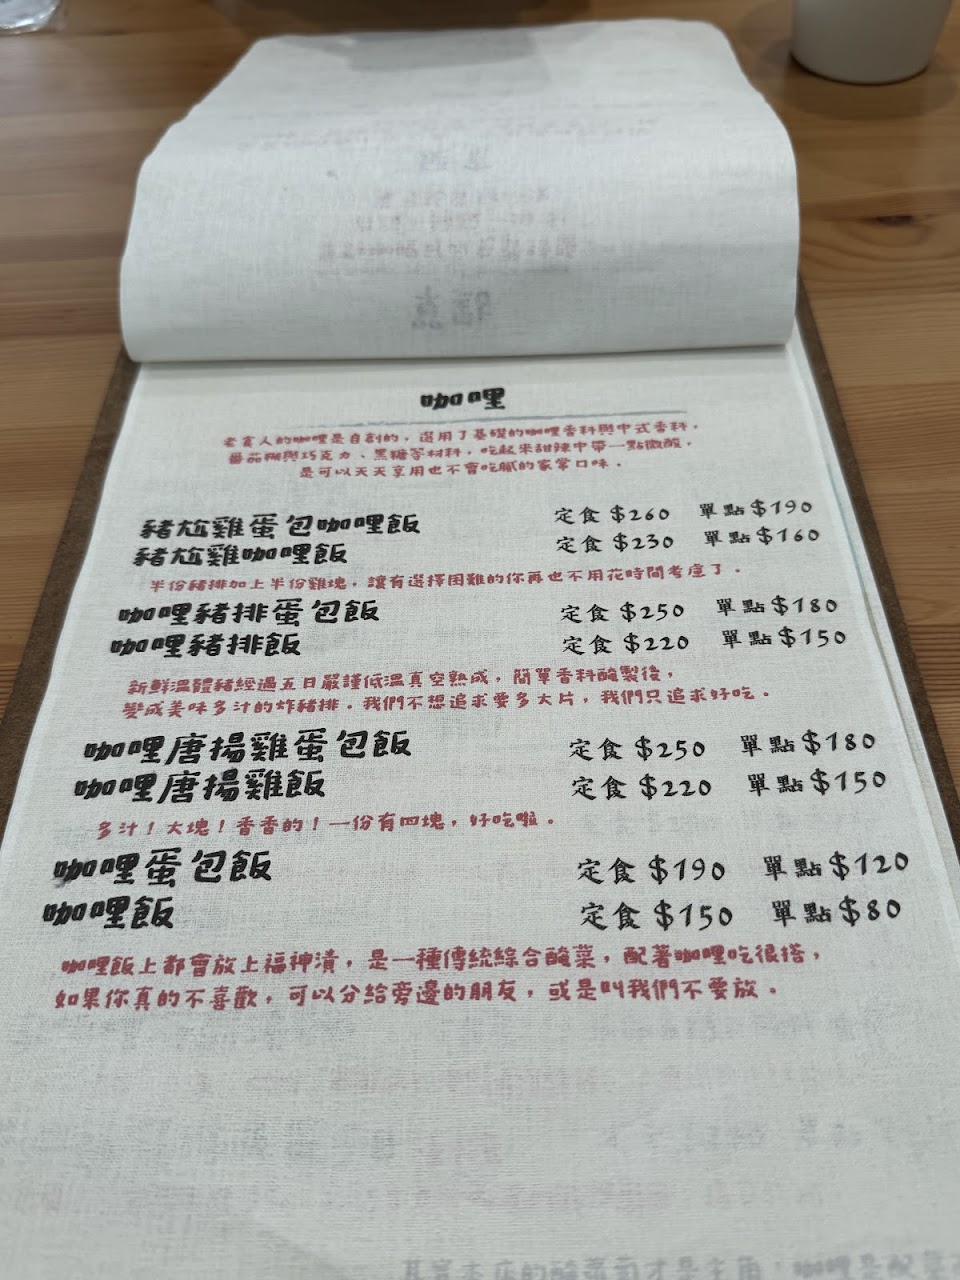 咖哩
老食人的咖哩是自創的，選用了基礎的咖哩香料與中式香料，
番茄糊與巧克力、黑糖等材料，吃起來甜辣中帶一點微酸，
是可以天天享用也不會吃膩的家常口味。
豬尬雞蛋包咖哩飯 定食 $260 單點 $190
豬尬雞咖哩飯 定食 $230 單點 $160
半份豬排加上半份雞塊，讓有選擇困難的你再也不用花時間考慮了。
咖哩豬排蛋包飯 定食 $250 單點 $180
咖哩豬排飯 定食 $220 單點 $150
新鮮溫體豬經過五日嚴謹低溫真空熟成，簡單香料醃製後，
變成美味多汁的炸豬排。我們不想追求要多大片，我們只追求好吃。
咖哩唐揚雞蛋包飯 定食 $250 單點 $180
咖哩唐揚雞飯 定食 $220 單點 $150
多汁！大塊！香香的！一份有四塊，好吃啦。
咖哩蛋包飯 定食 $190 單點 $120
咖哩飯 定食 $150 單點 $80
咖哩飯上都會放上福神漬，是一種傳統綜合醃菜，配著咖哩吃很搭，
如果你真的不喜歡，可以分給旁邊的朋友，或是叫我們不要放。